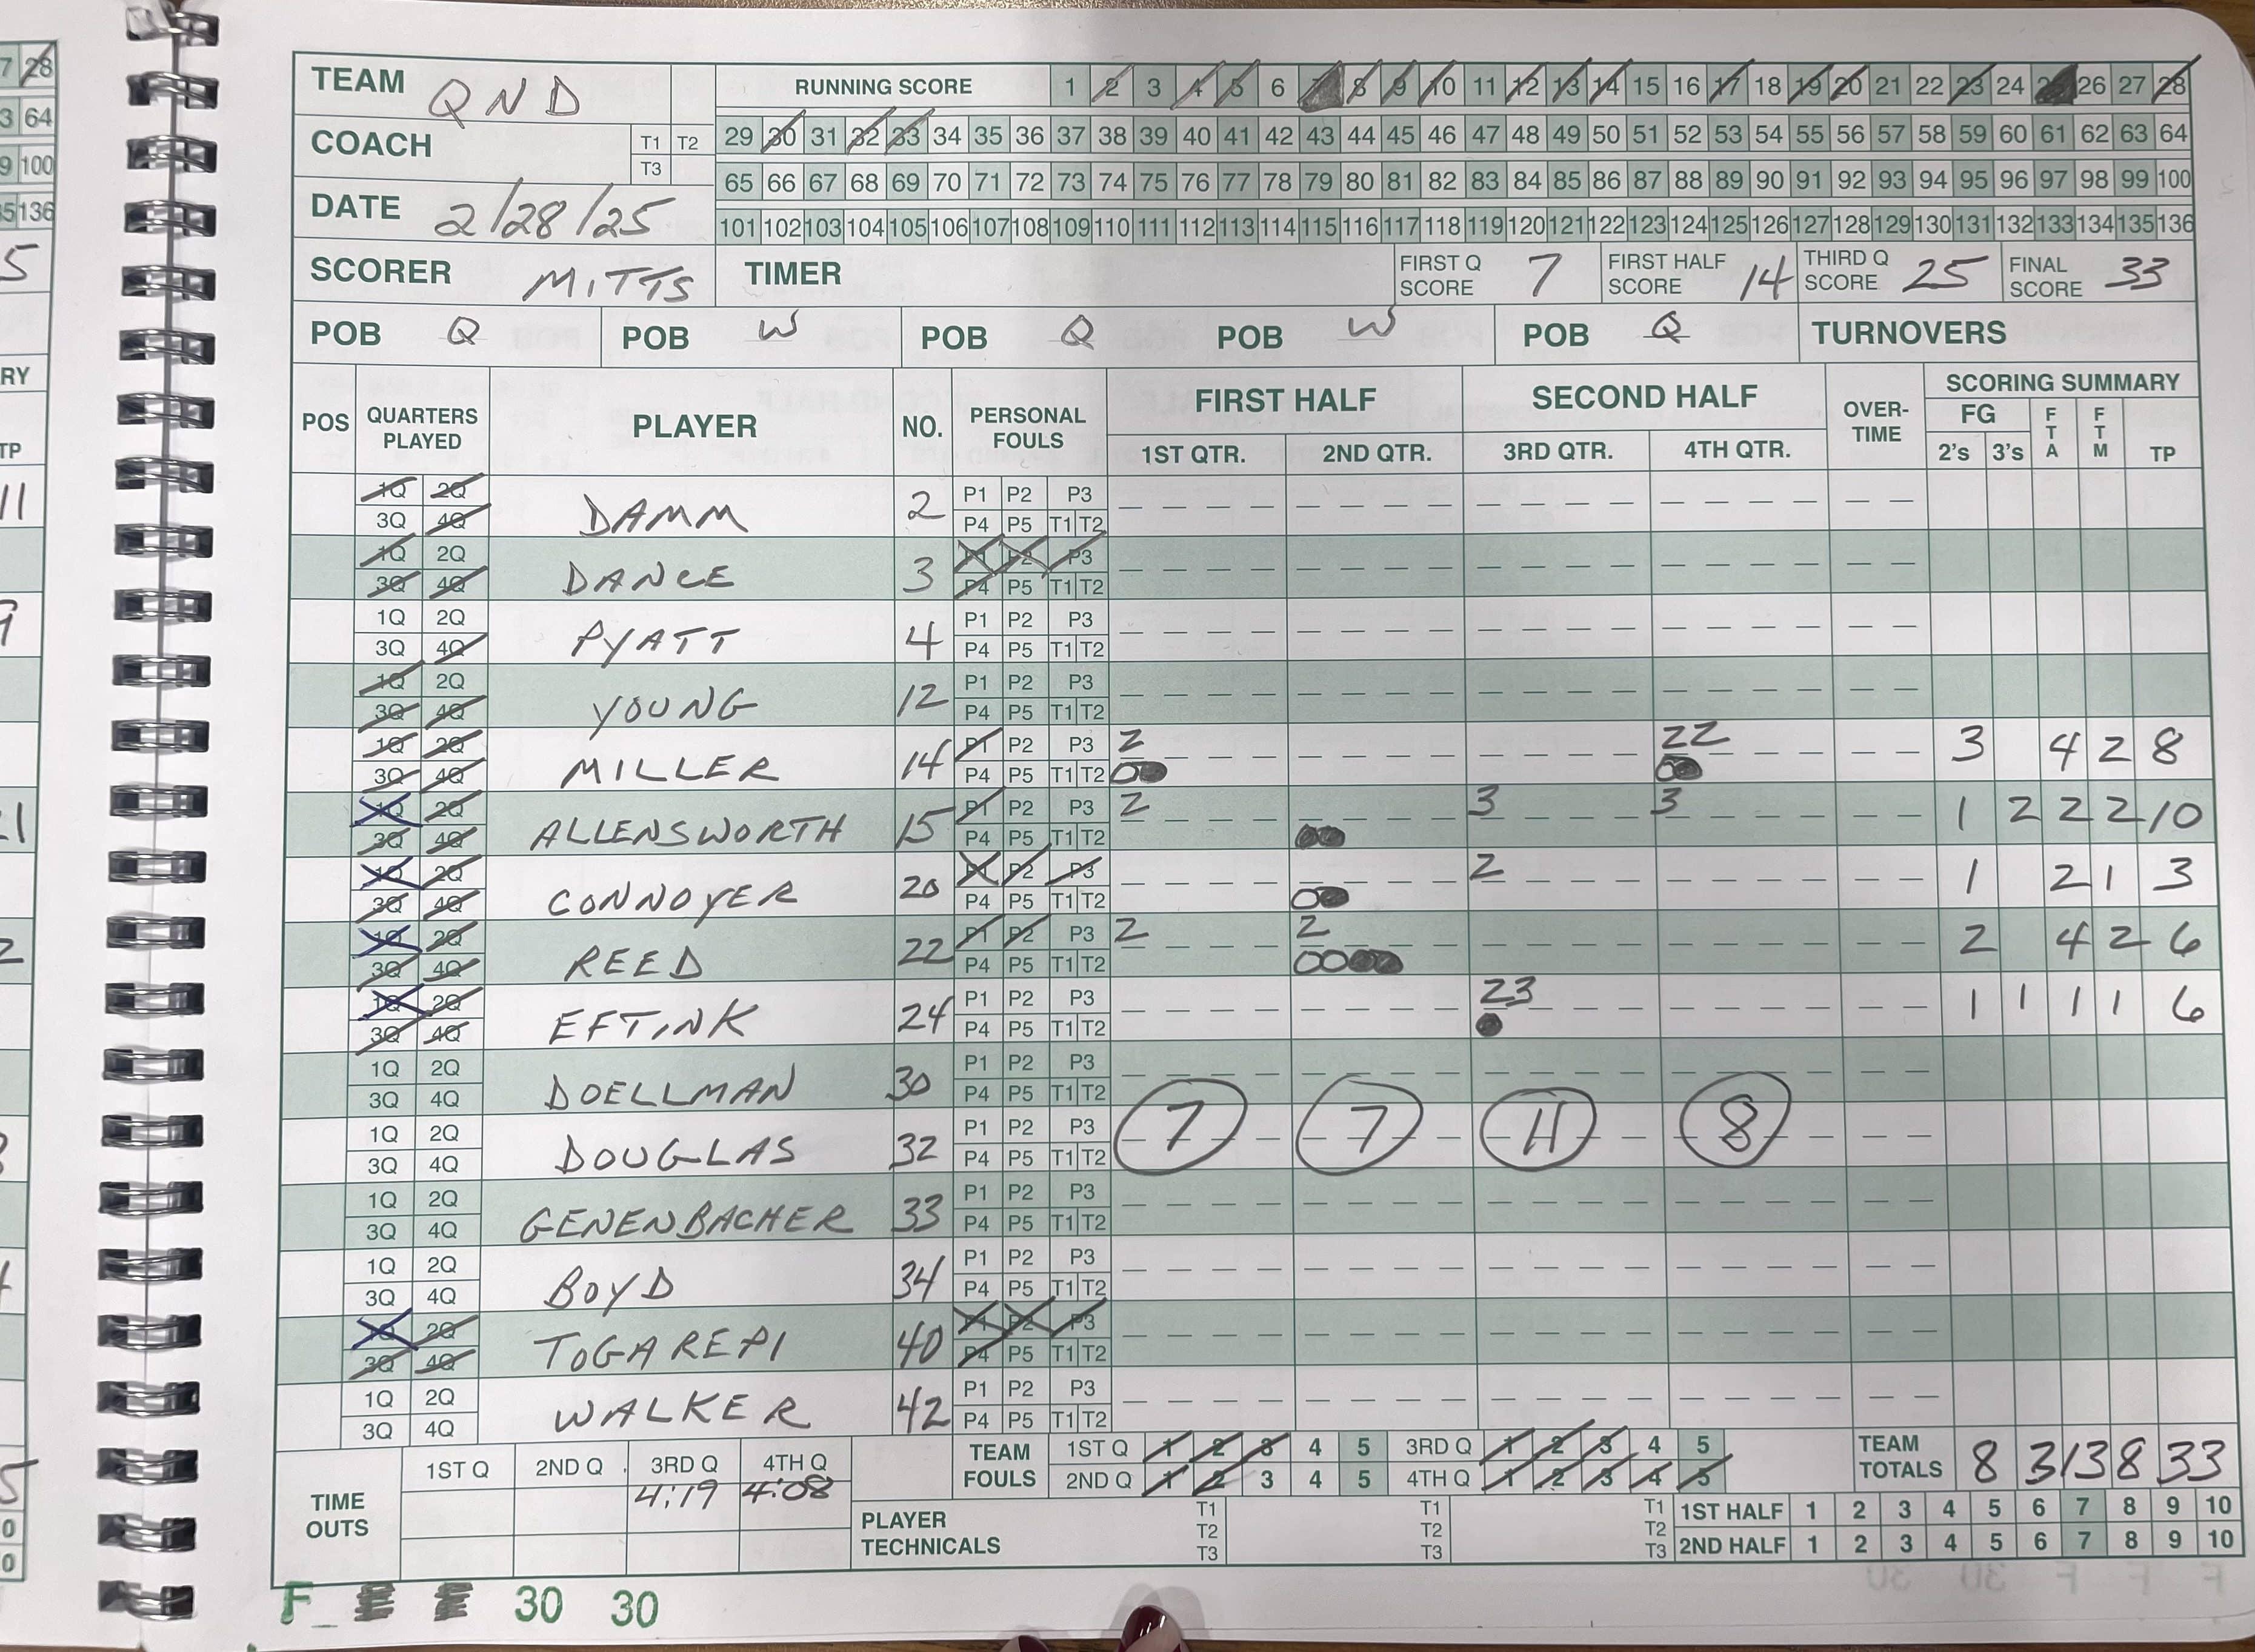 7 28
3 64
9 100
5 136
5
RY
TP
11
9
1
2
5
0
0
TEAM QND
COACH T1 T2
T3
DATE 2/28/25
SCORER MITTS TIMER
RUNNING SCORE 1 2 3 4 5 6 8 9 10 11 12 13 14 15 16 17 18 19 20 21 22 23 24 26 27 28
29 30 31 32 33 34 35 36 37 38 39 40 41 42 43 44 45 46 47 48 49 50 51 52 53 54 55 56 57 58 59 60 61 62 63 64
65 66 67 68 69 70 71 72 73 74 75 76 77 78 79 80 81 82 83 84 85 86 87 88 89 90 91 92 93 94 95 96 97 98 99 100
101 102 103 104 105 106 107 108 109 110 111 112 113 114 115 116 117 118 119 120 121 122 123 124 125 126 127 128 129 130 131 132 133 134 135 136
FIRST Q SCORE 7 FIRST HALF SCORE 14 THIRD Q SCORE 25 FINAL SCORE 33
POB Q POB W POB Q POB W POB Q TURNOVERS
POS QUARTERS PLAYED PLAYER NO. PERSONAL FOULS FIRST HALF SECOND HALF OVER-TIME SCORING SUMMARY
1ST QTR. 2ND QTR. 3RD QTR. 4TH QTR. FG 2's 3's FTA FTM TP
1Q 2Q DAMM 2 P1 P2 P3
3Q 4Q P4 P5 T1 T2
1Q 2Q DANCE 3 P1 P2 P3
3Q 4Q P4 P5 T1 T2
1Q 2Q PYATT 4 P1 P2 P3
3Q 4Q P4 P5 T1 T2
1Q 2Q YOUNG 12 P1 P2 P3
3Q 4Q P4 P5 T1 T2
1Q 2Q MILLER 14 P1 P2 P3 2 22 3 4 2 8
3Q 4Q P4 P5 T1 T2
1Q 2Q ALLENSWORTH 15 P1 P2 P3 2 3 3 1 2 2 2 10
3Q 4Q P4 P5 T1 T2
1Q 2Q CONNOYER 20 P1 P2 P3 2 1 2 1 3
3Q 4Q P4 P5 T1 T2
1Q 2Q REED 22 P1 P2 P3 2 2 2 4 2 6
3Q 4Q P4 P5 T1 T2
1Q 2Q EFTINK 24 P1 P2 P3 23 1 1 1 1 6
3Q 4Q P4 P5 T1 T2
1Q 2Q DOELLMAN 30 P1 P2 P3
3Q 4Q P4 P5 T1 T2
1Q 2Q DOUGLAS 32 P1 P2 P3 7 7 11 8
3Q 4Q P4 P5 T1 T2
1Q 2Q GENENBACHER 33 P1 P2 P3
3Q 4Q P4 P5 T1 T2
1Q 2Q BOYD 34 P1 P2 P3
3Q 4Q P4 P5 T1 T2
1Q 2Q TOGAREPI 40 P1 P2 P3
3Q 4Q P4 P5 T1 T2
1Q 2Q WALKER 42 P1 P2 P3
3Q 4Q P4 P5 T1 T2
TIME OUTS 1ST Q 2ND Q 3RD Q 4TH Q
4:19 4:08
TEAM FOULS 1ST Q 1 2 3 4 5 3RD Q 1 2 3 4 5
2ND Q 1 2 3 4 5 4TH Q 1 2 3 4 5
TEAM TOTALS 8 3 13 8 33
PLAYER TECHNICALS T1 T2 T3 T1 T2 T3 T1 T2 T3
1ST HALF 1 2 3 4 5 6 7 8 9 10
2ND HALF 1 2 3 4 5 6 7 8 9 10
F 30 30